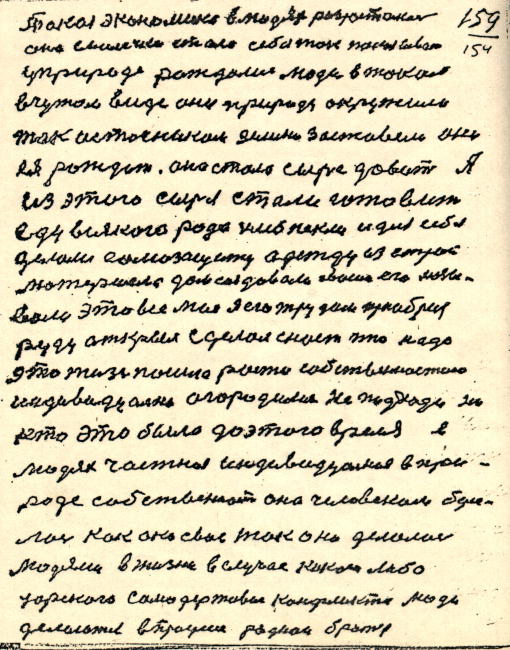 159
154
Такая экономика в людях разросталась
она
у природе рождались люди в таком
в чужом виде они природу окружили
так источником земли заставили они
ея рождать. она стала сырье давать Я
из этого сырья стали готовить
еду всякого рода хлеб пекли и для себя
делали самозащиту одежду из
дом создавали свои его назы-
вали это все мое я его трудом приобрел
руду открыл сделал снаст что надо
это жизь пошла роста собственностию
индивидуално огородилися не подходи ни
кто это было до этого время в
людях частная индивидуалная в при-
роде собственост она человеком бы-
лась как она свое так она делалас
людями в жизни в случае каком либо
царского самодержавия конфликта люди
делалися в родной брат